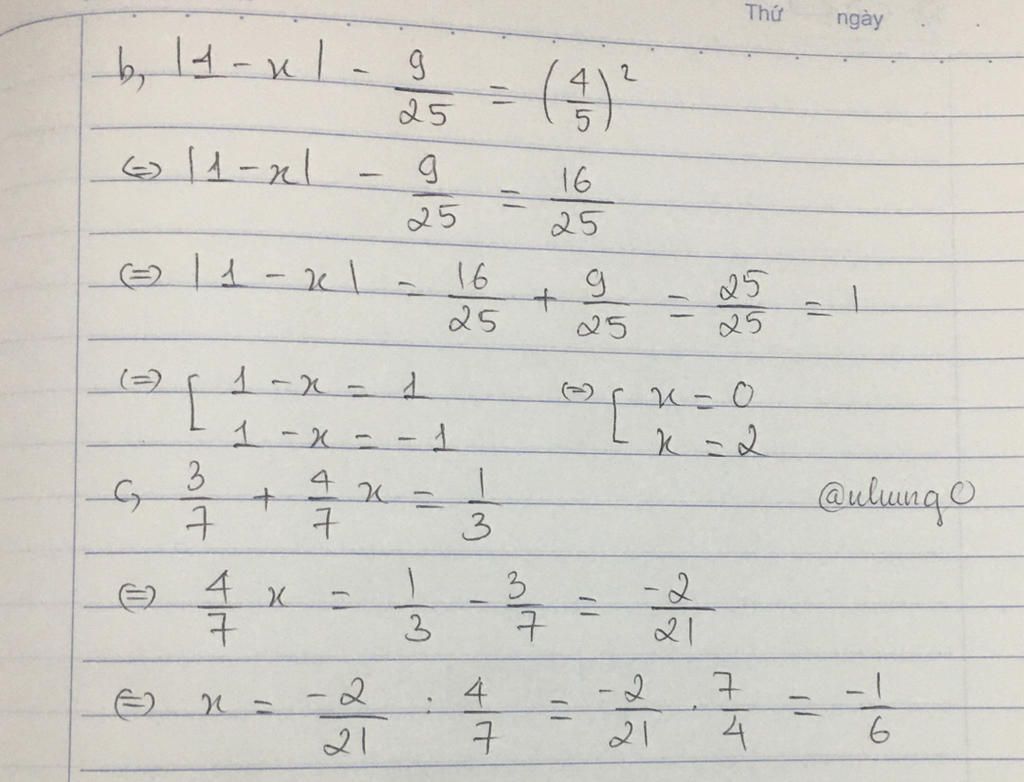 Thứ ngày
b, |1 - x| - 9/25 = (4/5)²
(=) |1 - x| - 9/25 = 16/25
(=) |1 - x| = 16/25 + 9/25 = 25/25 = 1
(=) [ 1 - x = 1 (=) [ x = 0
1 - x = -1 x = 2
c, 3/7 + 4/7 x = 1/3 @uhung0
(=) 4/7 x = 1/3 - 3/7 = -2/21
(=) x = -2/21 : 4/7 = -2/21 . 7/4 = -1/6